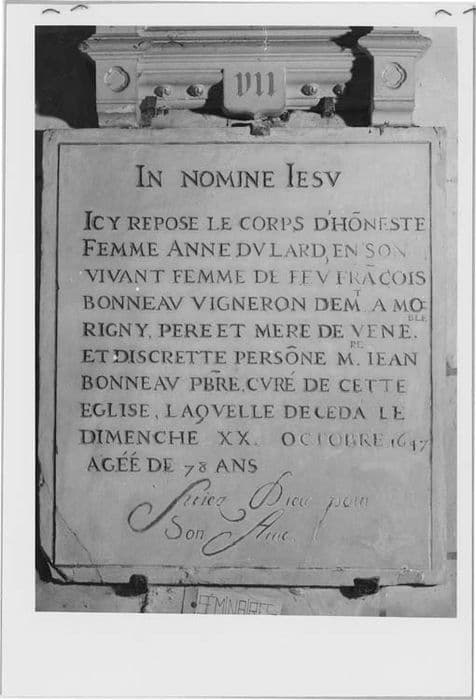 VII
IN NOMINE IESV
ICY REPOSE LE CORPS D'HÕNESTE
FEMME ANNE DVLARD, EN SON
VIVANT FEMME DE FEV FRÃCOIS
BONNEAV VIGNERON DEM.T A MO
RIGNY, PERE ET MERE DE VENE.BLE
ET DISCRETTE PERSÕNE M.RE IEAN
BONNEAV PB̃RE, CVRÉ DE CETTE
EGLISE, LAQVELLE DECEDA LE
DIMENCHE XX. OCTOBRE 1647
AGÉE DE 78 ANS
Priez Dieu pour
Son Ame.
SÉMINAIRES